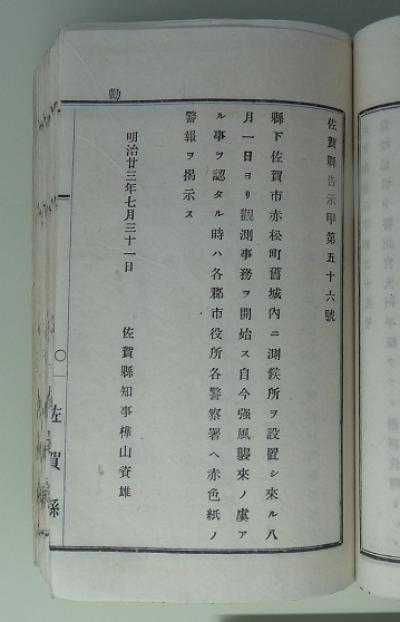 佐賀縣告示甲第五十六號
縣下佐賀市赤松町舊城內ニ測候所ヲ設置シ來ル八
月一日ヨリ觀測事務ヲ開始ス自今强風襲來ノ虞ア
ル事ヲ認タル時ハ各郡市役所各警察署ヘ赤色紙ノ
警報ヲ揭示ス
明治廿三年七月三十一日
佐賀縣知事樺山資雄
勸
〇
佐賀縣